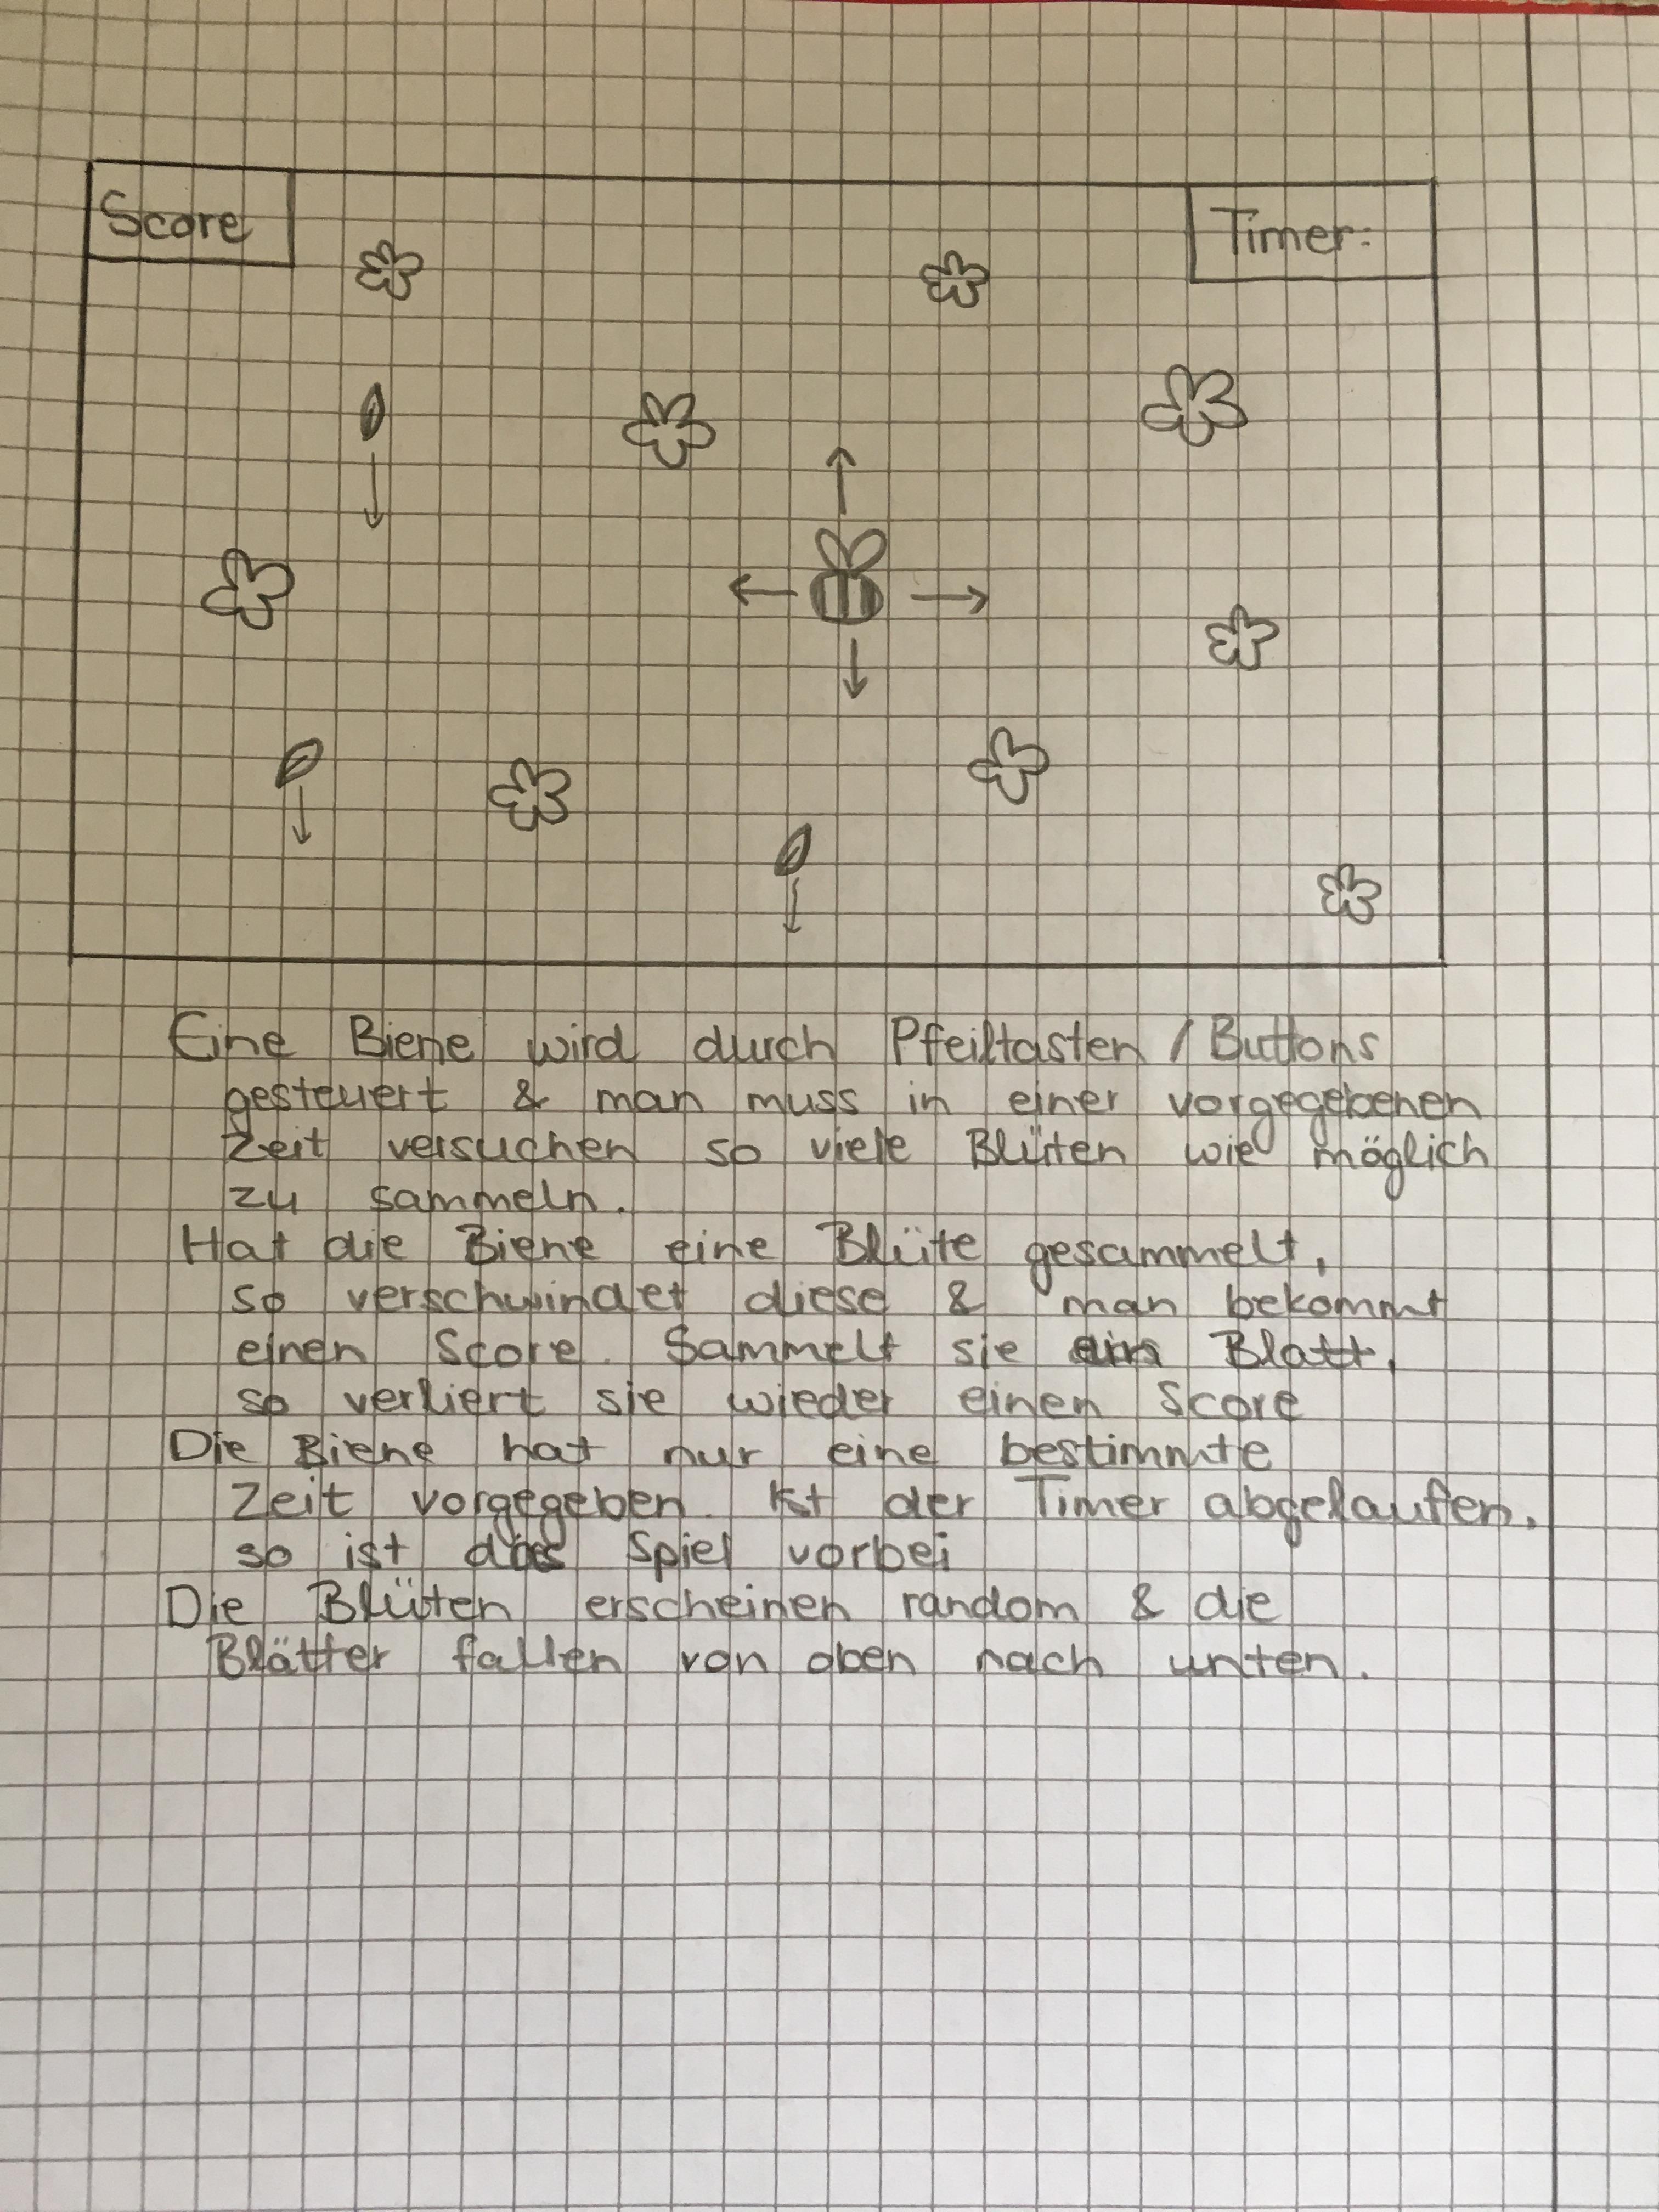 Score
Timer:
Eine Biene wird durch Pfeiltasten / Buttons
gesteuert & man muss in einer vorgegebenen
Zeit versuchen so viele Blüten wie möglich
zu sammeln.
Hat die Biene eine Blüte gesammelt,
so verschwindet diese & man bekommt
einen Score. Sammelt sie ein Blatt,
so verliert sie wieder einen Score
Die Biene hat nur eine bestimmte
Zeit vorgegeben. Ist der Timer abgelaufen,
so ist das Spiel vorbei
Die Blüten erscheinen random & die
Blätter fallen von oben nach unten.